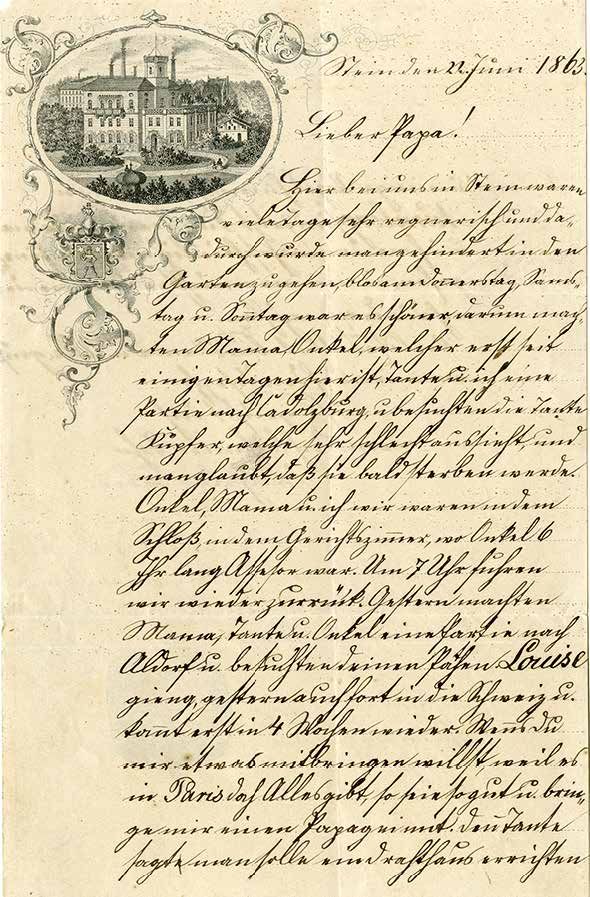 Stein den 22. Juni 1863.
Lieber Papa!
Hier bei uns in Stein waren
viele tage sehr regnerisch und da-
durch wurde man gehindert in den
Garten zu gehen, blos am donnerstag, Sams-
tag u. Sonntag war es schöner, darum mach-
ten Mama, Onkel, welcher erst seit
einigen Tagen hier ist, Tante u. ich eine
Partie nach Cadolzburg, u besuchten die Tante
Kupfer, welche sehr schlecht aussieht, und
man glaubt, daß sie bald sterben werde.
Onkel, Mama u. ich wir waren in dem
Schloß in dem Gerichtszimmer, wo Onkel 6
Jhr lang Assesor war. Um 7 Uhr fuhren
wir wieder zurrück. Gestern machten
Mama, Tante u. Onkel eine Partie nach
Aldorf u. besuchten deinen Pathen Louise
gieng, gestern auch fort in die Schweiz u.
kommt erst in 4 Wochen wieder. Wenns Du
mir etwas mitbringen willst, weil es
in Paris doch Alles gibt, so seie so gut u. brin-
ge mir einen Papagei mit. den Tante
sagte man solle ein drahthaus errichten